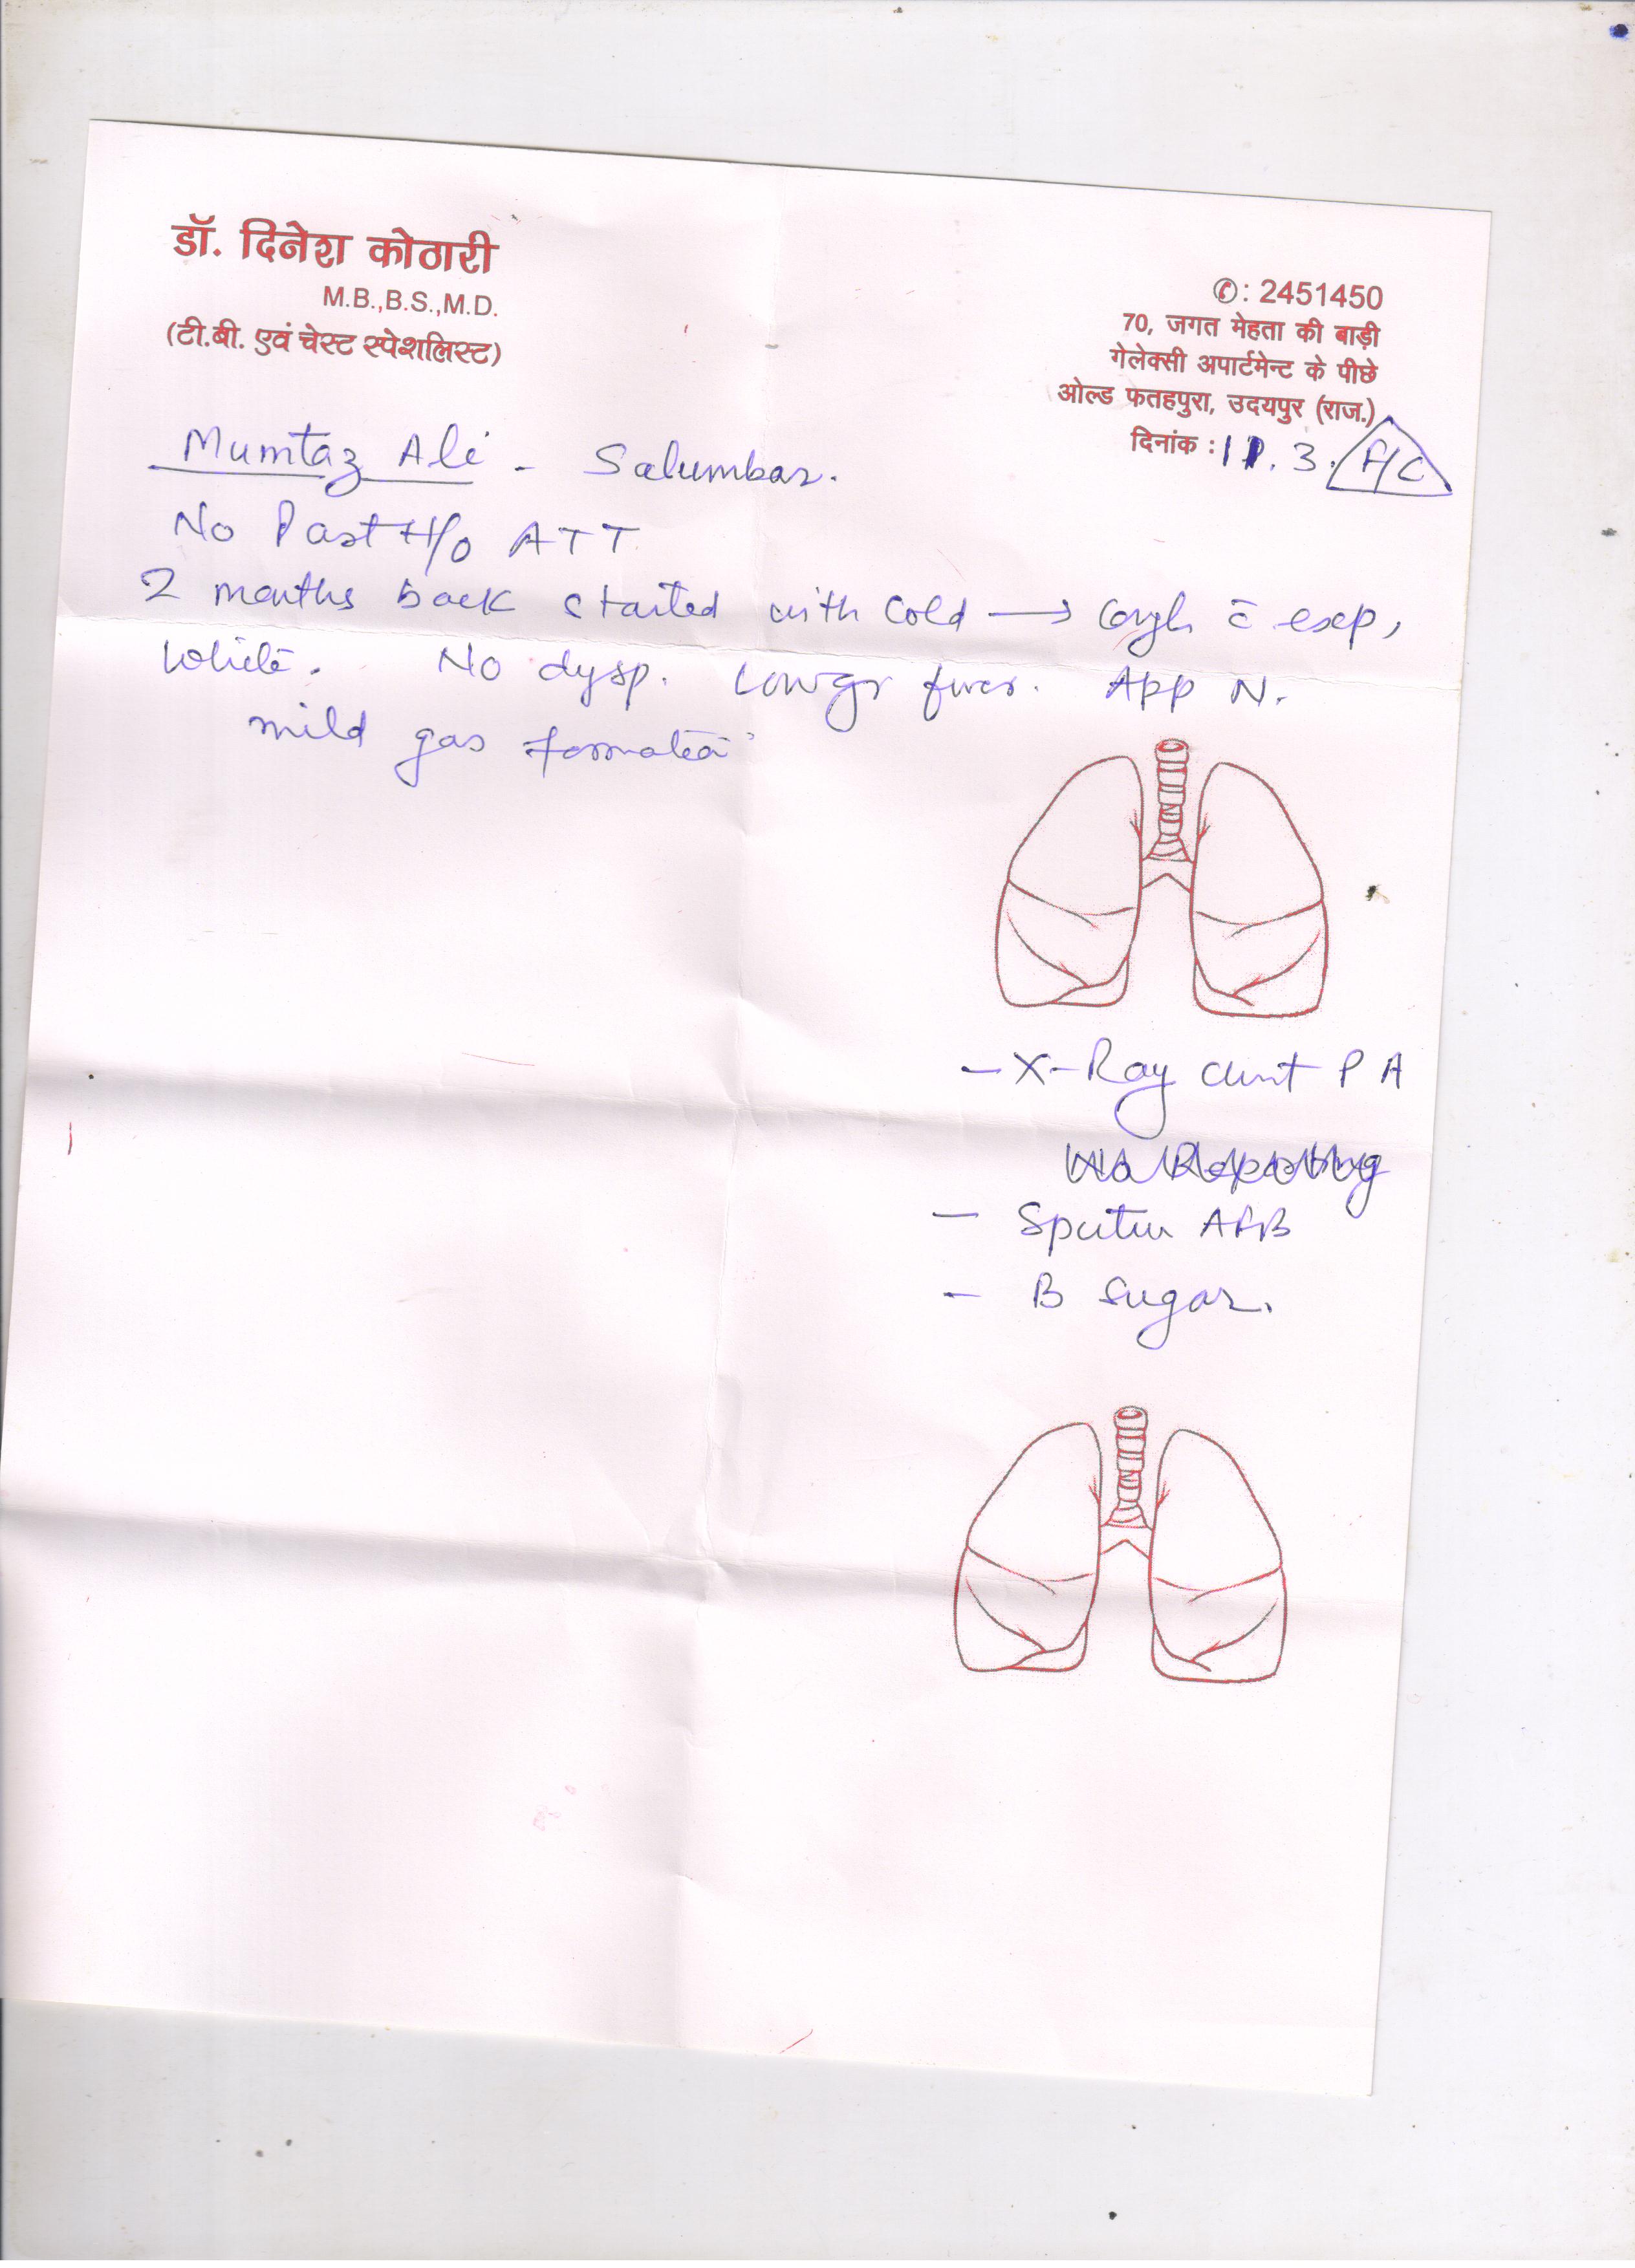 डॉ. दिनेश कोठारी
M.B.,B.S.,M.D.
(टी.बी. एवं चेस्ट स्पेशलिस्ट)
✆: 2451450
70, जगत मेहता की बाड़ी
गेलेक्सी अपार्टमेन्ट के पीछे
ओल्ड फतहपुरा, उदयपुर (राज.)
दिनांक : 11.3.
F/C
Mumtaz Ali - Salumbar.
No Past H/o ATT
2 months back started with cold → Cough c̄ exp,
White. No dysp. Lowgr fever. App N.
mild gas formation
- X-Ray Chest PA
- Sputum AFB
- B sugar.